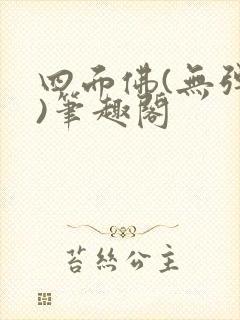 四面佛(無彈
)筆趣閣
苔絲公主